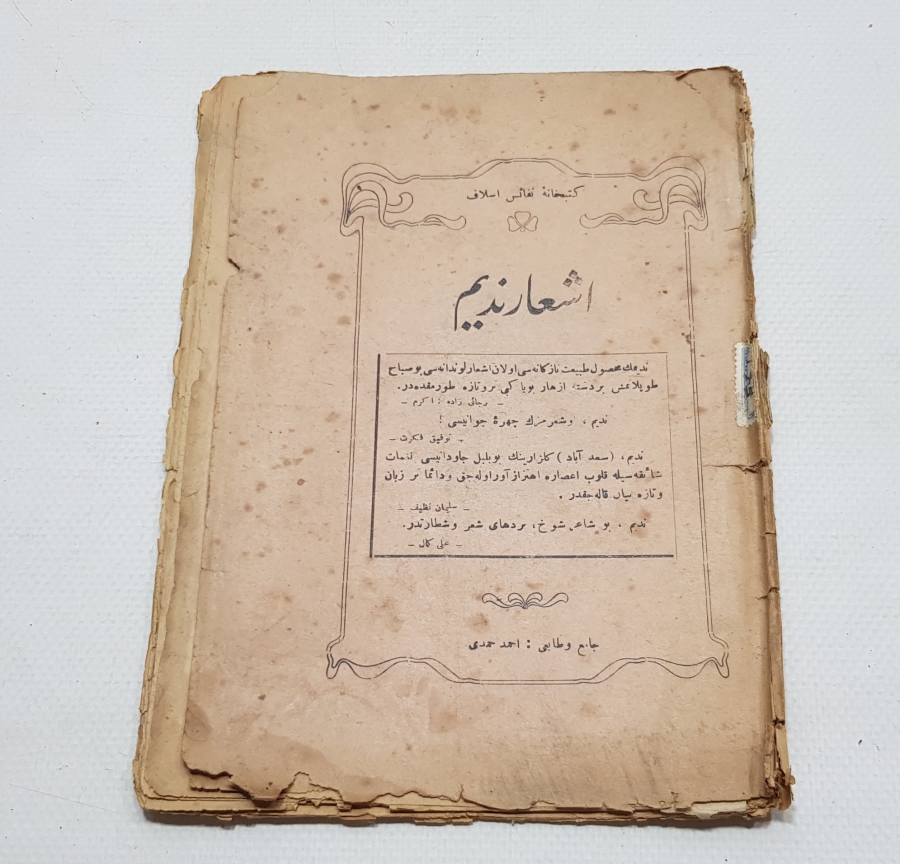 كتبخانهٔ نفائس اسلاف
اشعار نديم
نديمك محصول طبيعت نازكانه‌سى اولان اشعار لوندانه‌سى بو صباح
طوپلانمش بر دسته ازهار بويا كبى تر و تازه طورمقده‌در.
— رجائى زاده : اكرم —
نديم ، او شعرمزك چهرهٔ جوانيسى !
— توفيق فكرت —
نديم، (سعد آباد) كلزارينك بو بلبل جاودانيسى نغمات
شائقه‌سيله قلوب اعصاره اهتزاز آور اوله‌جق و دائما تر زبان
و تازه بيان قاله‌جقدر .
— سليمان نظيف —
نديم ، بو شاعر شوخ، بر دهاى شعر و شطارتدر.
— على كمال —
جامع و طابعى : احمد حمدى